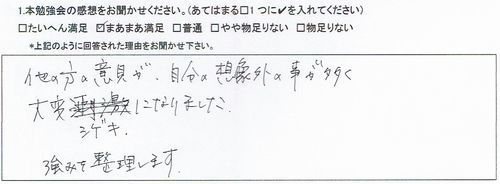 1.本勉強会の感想をお聞かせください。(あてはまる□1つに✔を入れてください)
□たいへん満足 ☑まあまあ満足 □普通 □やや物足りない □物足りない
*上記のように回答された理由をお聞かせ下さい。
他の方の意見が、自分の想象外の事が多く
大変刺激になりました.
シゲキ.
強みを整理します.